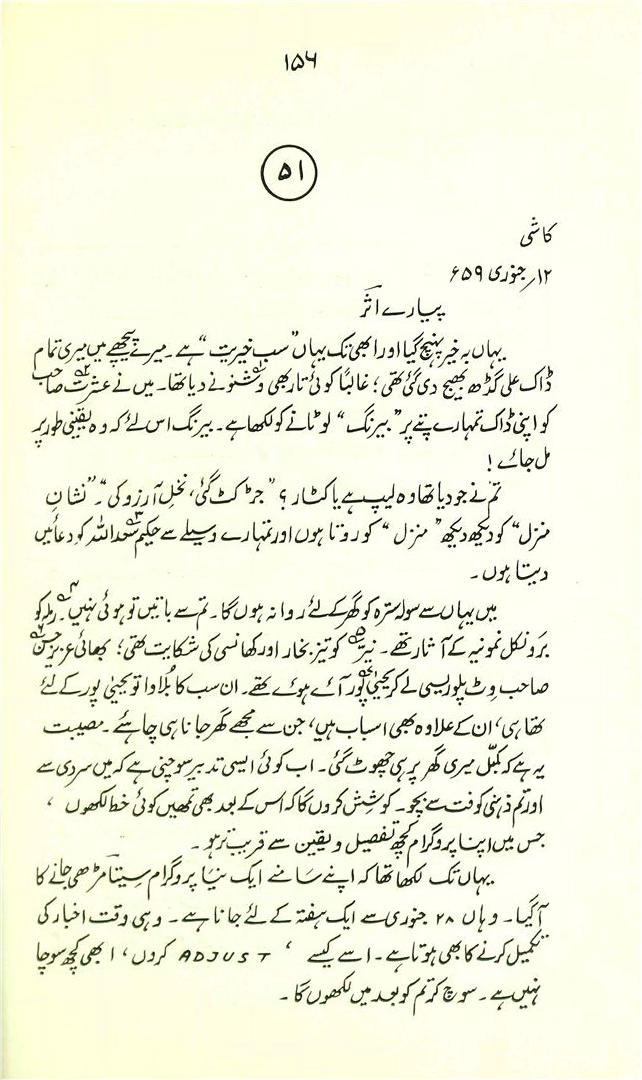 ۱۵۶
۵۱
کاشی
۱۲؍ جنوری ۵۹ء
پیارے اثرؔ
یہاں بہ خیر پہنچ گیا اور ابھی تک یہاں ”سب خیریت“ ہے۔ میرے پیچھے میں میری تمام
ڈاک علی گڈھ بھیج دی گئی تھی؛ غالباً کوئی تار بھی وشنو نے دیا تھا۔ میں نے عشرت صاحب
کو اپنی ڈاک تمہارے پتے پر ”بیرنگ“ لوٹانے کو لکھا ہے۔ بیرنگ اس لئے کہ وہ یقینی طور پر
مل جائے!
تم نے جو دیا تھا وہ لیپ ہے یا کٹار؟ ”جڑ کٹ گئی، نخلِ آرزو کی“۔ ”نشانِ
منزل“ کو دیکھ دیکھ ”منزل“ کو روتا ہوں اور تمہارے وسیلے سے حکیم سعد اللہ کو دعائیں
دیتا ہوں۔
میں یہاں سے سولہ سترہ کو گھر کے لئے روانہ ہوں گا۔ تم سے باتیں تو ہوئی نہیں۔ رملہ کو
برونکل نمونیہ کے آثار تھے۔ نیر کو تیز بخار اور کھانسی کی شکایت تھی؛ بھائی عزیز حسن
صاحب وٹ پلوریسی لے کر یحییٰ پور آئے ہوئے تھے۔ ان سب کا بُلاوا تو یحییٰ پور کے لئے
تھا ہی، ان کے علاوہ بھی اسباب ہیں، جن سے مجھے گھر جانا ہی چاہئے۔ مصیبت
یہ ہے کہ کمبّل میری گھر پر ہی چھوٹ گئی۔ اب کوئی ایسی تدبیر سوچنی ہے کہ میں سردی سے
اور تم ذہنی کوفت سے بچو۔ کوشش کروں گا کہ اس کے بعد بھی تمھیں کوئی خط لکھوں،
جس میں اپنا پروگرام کچھ تفصیل و یقین سے قریب تر ہو۔
یہاں تک لکھا تھا کہ اپنے سامنے ایک نیا پروگرام سیتا مڑھی جانے کا
آگیا۔ وہاں ۲۸ جنوری سے ایک ہفتہ کے لئے جانا ہے۔ وہی وقت اخبار کی
تکمیل کرنے کا بھی ہوتا ہے۔ اسے کیسے، ADJUST کروں، ابھی کچھ سوچا
نہیں ہے۔ سوچ کر تم کو بعد میں لکھوں گا۔